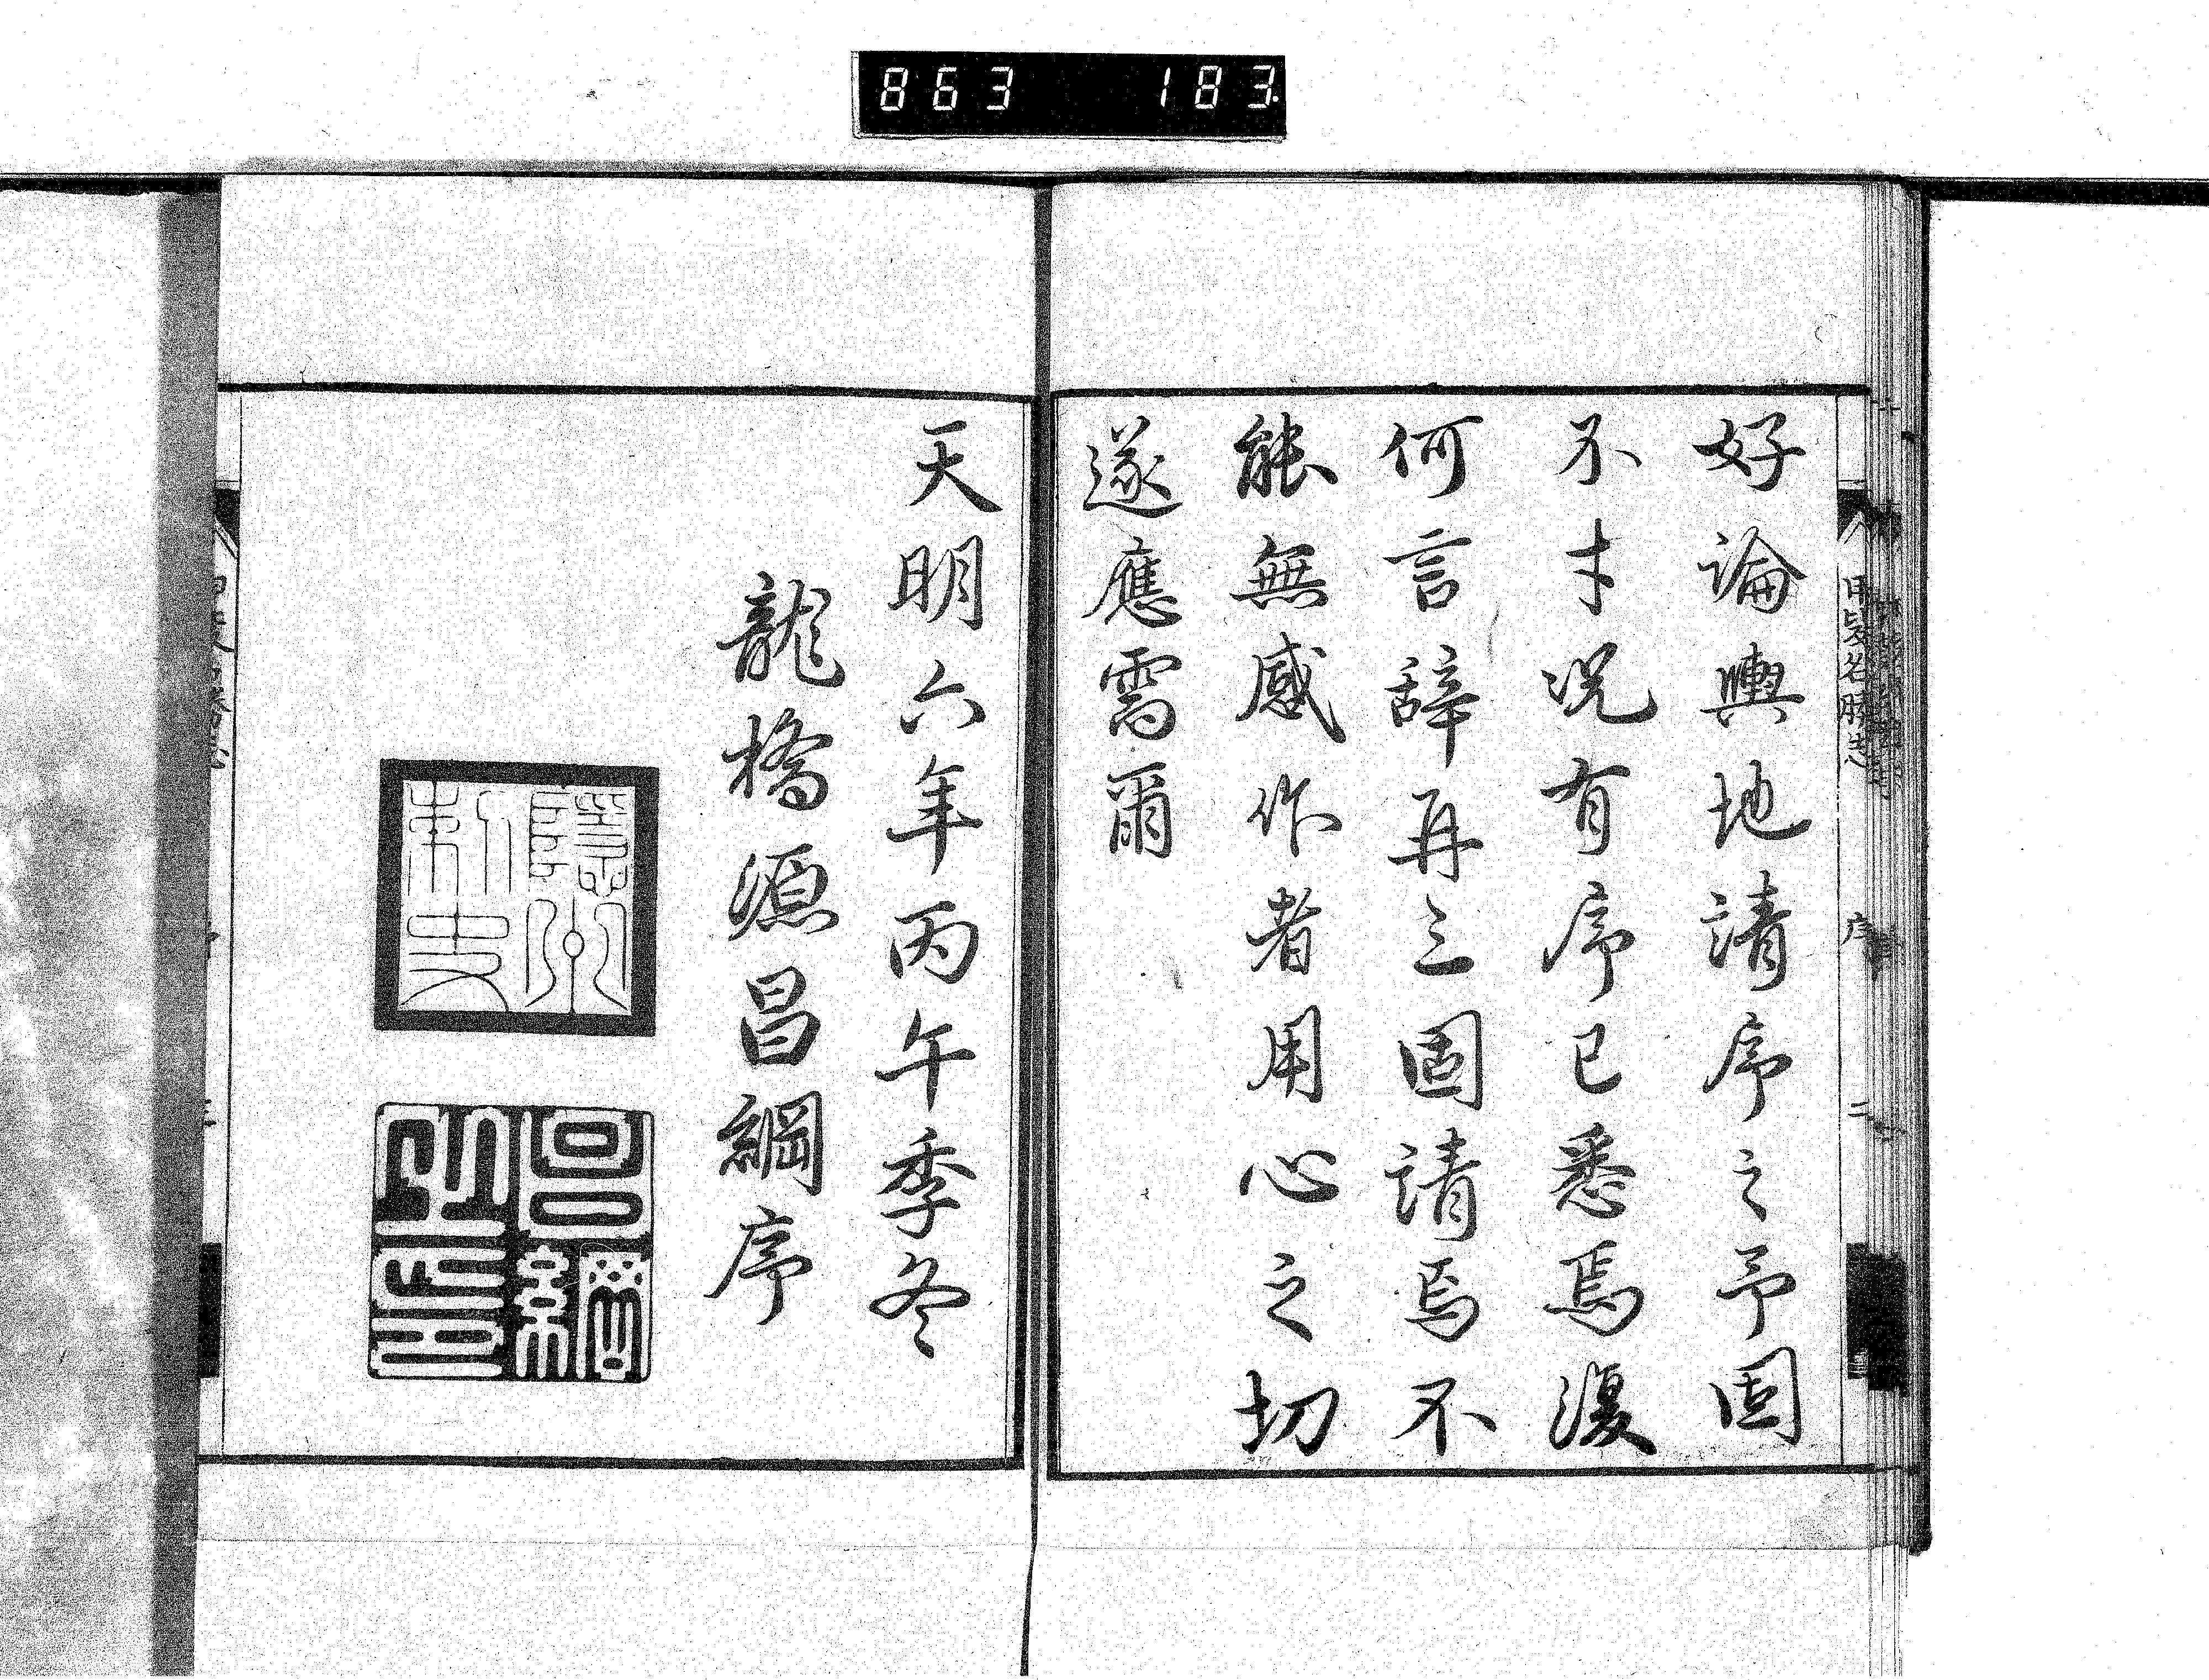 863 183
好論輿地請序之予固
不才况有序已悉焉復
何言辞再三固請焉不
能無感作者用心之切
遂應需爾
天明六年丙午季冬
龍橋源昌綱序
昌綱
甲斐名勝志
序
二